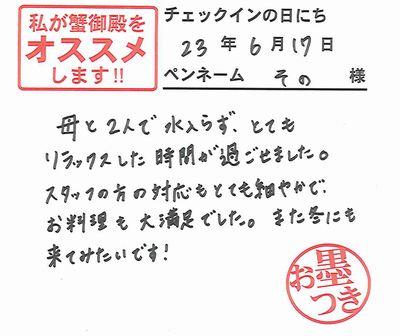 私が蟹御殿を
オススメ
します!!
チェックインの日にち
23年6月17日
ペンネーム その 様
母と2人で水入らず、とても
リラックスした時間が過ごせました。
スタッフの方の対応もとても細やかで、
お料理も大満足でした。また冬にも
来てみたいです!
お墨つき